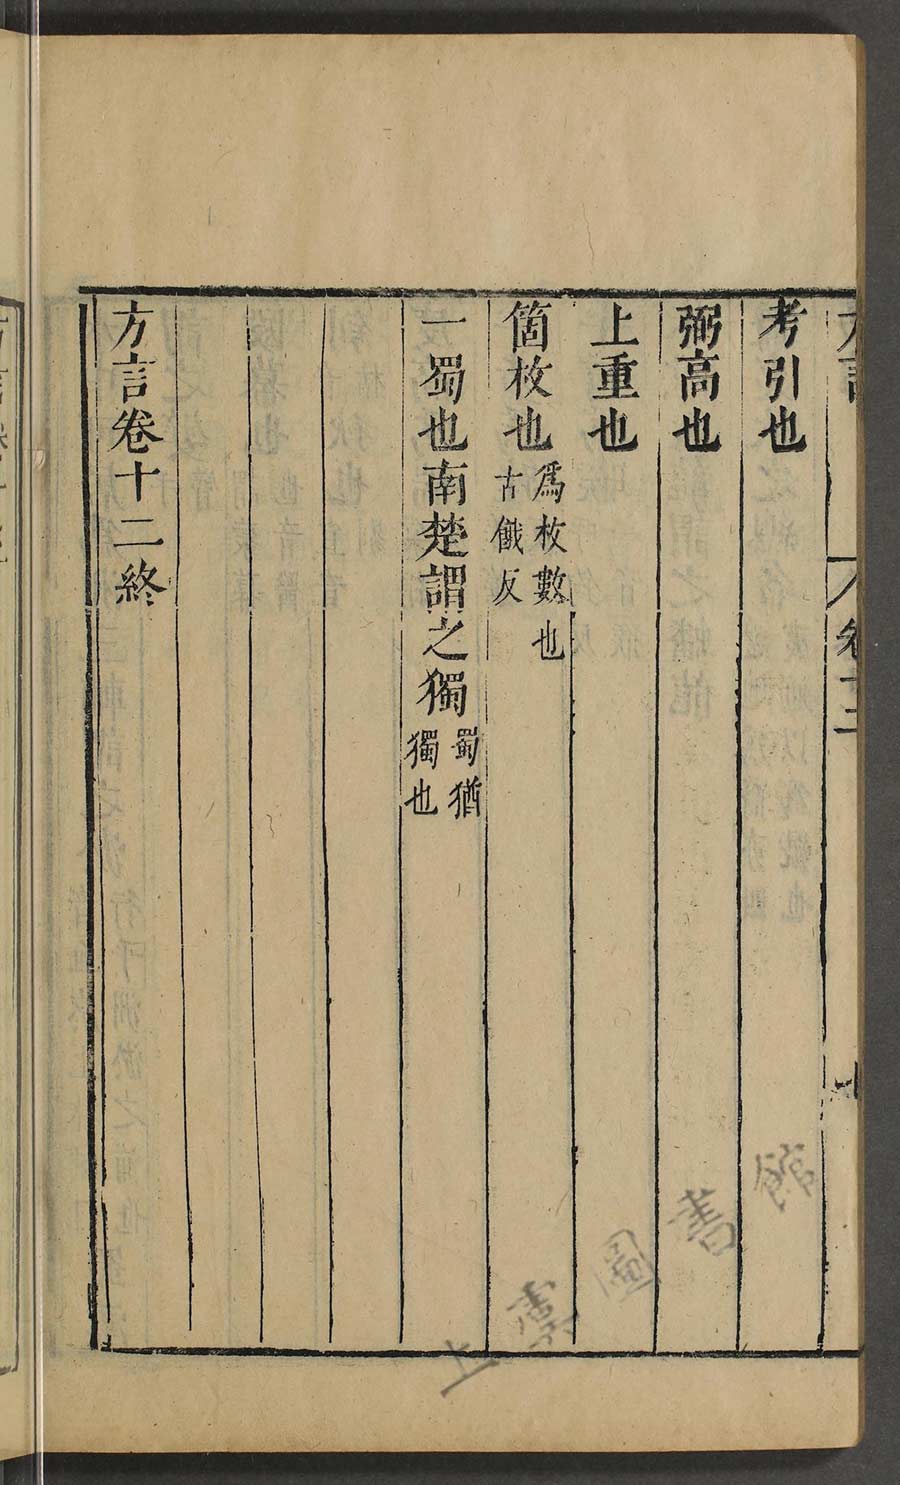 考引也
弼高也
上重也
箇枚也爲枚數也古餓反
一蜀也南楚謂之獨蜀猶獨也
方言卷十二終
上虞圖書館